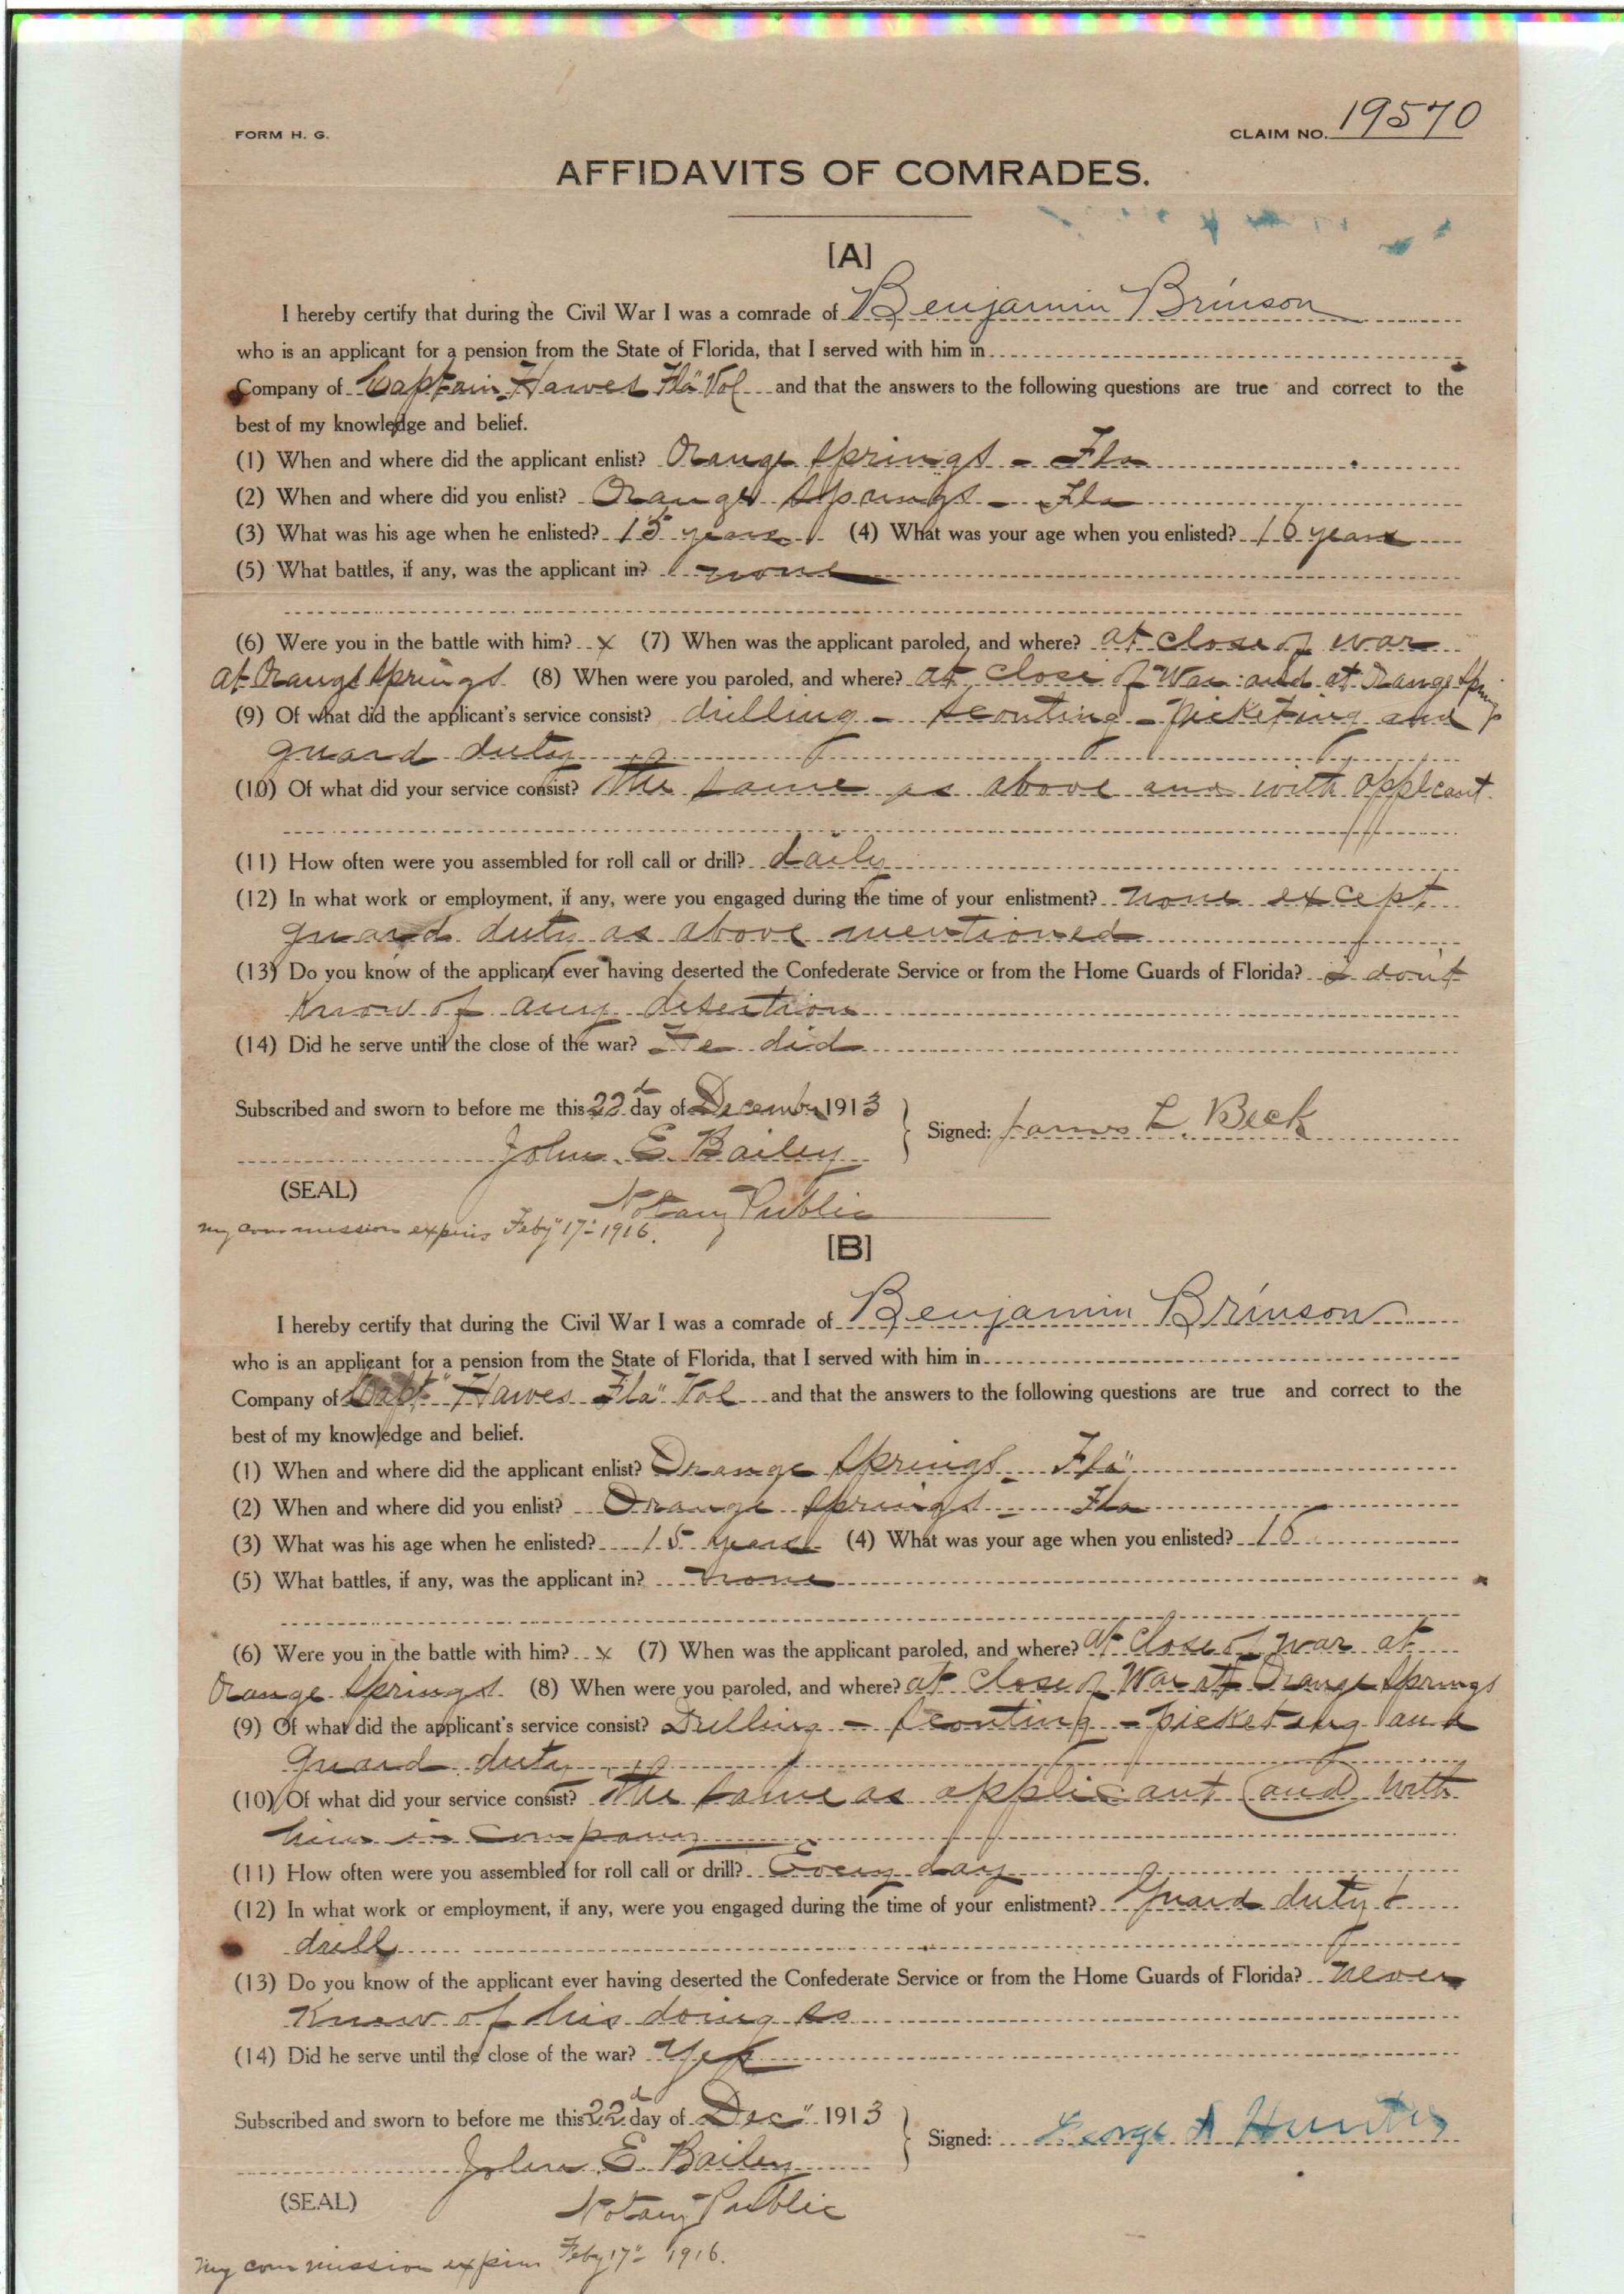 FORM H. G.
CLAIM NO. 19570
AFFIDAVITS OF COMRADES.
[A]
I hereby certify that during the Civil War I was a comrade of Benjamin Brinson
who is an applicant for a pension from the State of Florida, that I served with him in
Company of Captain Hawes Fla" Vol and that the answers to the following questions are true and correct to the
best of my knowledge and belief.
(1) When and where did the applicant enlist? Orange Springs - Fla
(2) When and where did you enlist? Orange Springs - Fla
(3) What was his age when he enlisted? 15 years (4) What was your age when you enlisted? 16 years
(5) What battles, if any, was the applicant in? none
(6) Were you in the battle with him? x (7) When was the applicant paroled, and where? at close of war
at Orange Springs (8) When were you paroled, and where? at close of War and at Orange Springs
(9) Of what did the applicant's service consist? drilling - scouting - picketing and
guard duty
(10) Of what did your service consist? The same as above and with applicant
(11) How often were you assembled for roll call or drill? daily
(12) In what work or employment, if any, were you engaged during the time of your enlistment? none except
guard duty as above mentioned
(13) Do you know of the applicant ever having deserted the Confederate Service or from the Home Guards of Florida? I don't
know of any desertion
(14) Did he serve until the close of the war? He did
Subscribed and sworn to before me this 22d day of December 1913
Signed: James L. Beck
John E. Bailey
(SEAL)
Notary Public
My commission expires Feby 17" - 1916.
[B]
I hereby certify that during the Civil War I was a comrade of Benjamin Brinson
who is an applicant for a pension from the State of Florida, that I served with him in
Company of Capt" Hawes Fla" Vol and that the answers to the following questions are true and correct to the
best of my knowledge and belief.
(1) When and where did the applicant enlist? Orange Springs - Fla"
(2) When and where did you enlist? Orange Springs - Fla
(3) What was his age when he enlisted? 15 years (4) What was your age when you enlisted? 16
(5) What battles, if any, was the applicant in? none
(6) Were you in the battle with him? x (7) When was the applicant paroled, and where? at close of war at
Orange Springs. (8) When were you paroled, and where? at close of War at Orange Springs
(9) Of what did the applicant's service consist? Drilling - scouting - picketing and
guard duty
(10) Of what did your service consist? The same as applicant (and) with
him in company
(11) How often were you assembled for roll call or drill? Every day
(12) In what work or employment, if any, were you engaged during the time of your enlistment? Guard duty &
drill
(13) Do you know of the applicant ever having deserted the Confederate Service or from the Home Guards of Florida? never
knew of his doing so
(14) Did he serve until the close of the war? Yes
Subscribed and sworn to before me this 22d day of Dec" 1913
Signed: George A Hunter
John E. Bailey
(SEAL)
Notary Public
My commission expires Feby 17" - 1916.